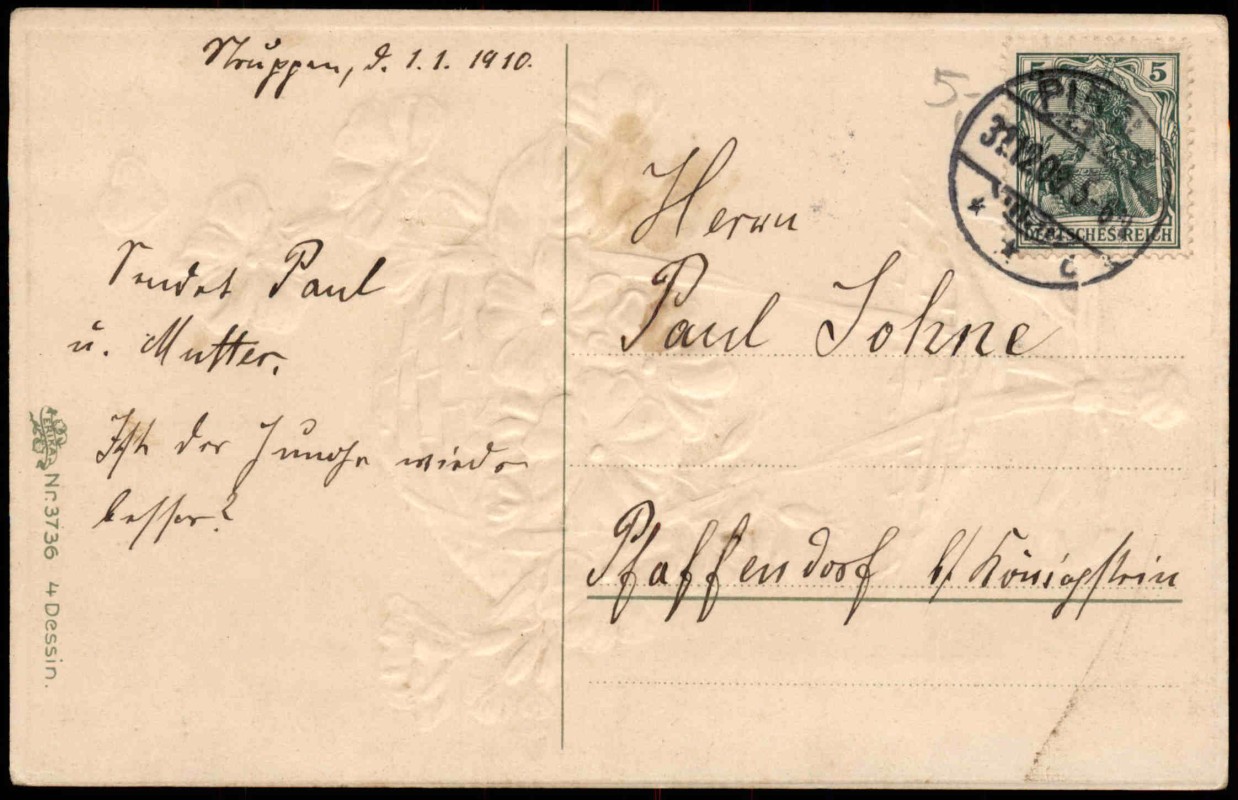 Struppen, d. 1.1. 1910.
Sendet Paul
u. Mutter.
Ist der Junge wieder
besser?
ERIKA
Nr. 3736 4 Dessin.
5-
5 5
DEUTSCHES REICH
PIRNA
31.12.09. 5-6N
* * c
Herrn
Paul Johne
Pfaffendorf b/ Königstein